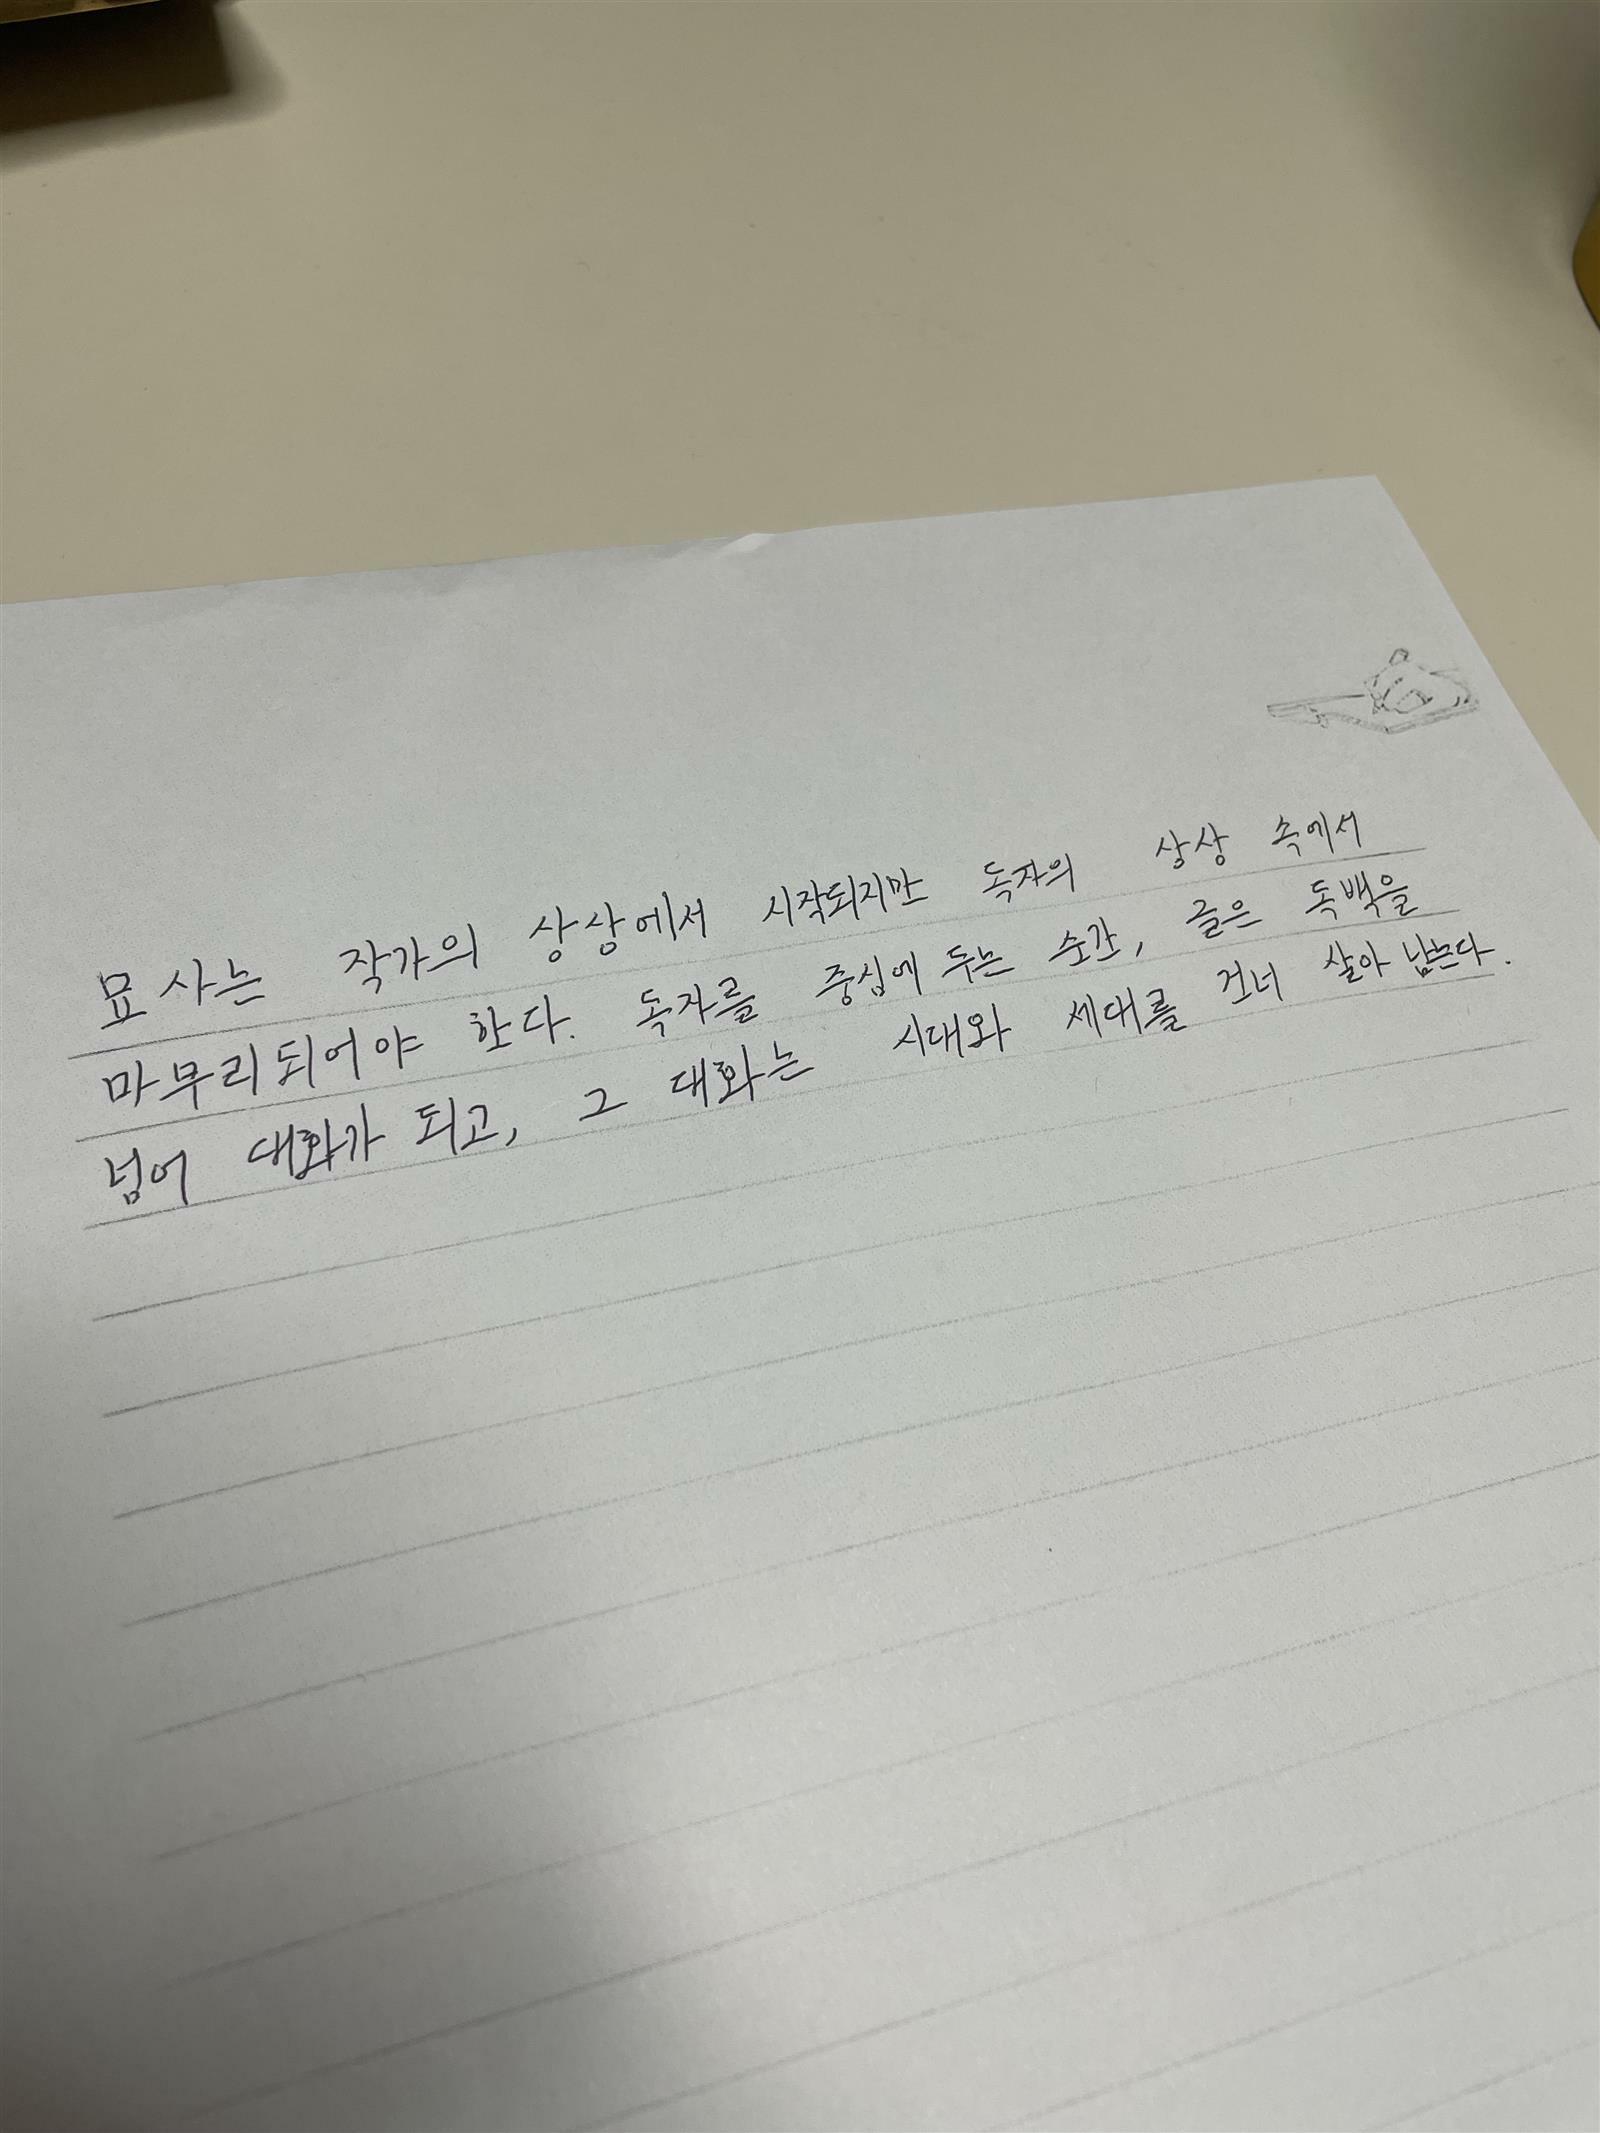 묘사는 작가의 상상에서 시작되지만 독자의 상상 속에서
마무리되어야 한다. 독자를 중심에 두는 순간, 글은 독백을
넘어 대화가 되고, 그 대화는 시대와 세대를 건너 살아 남는다.